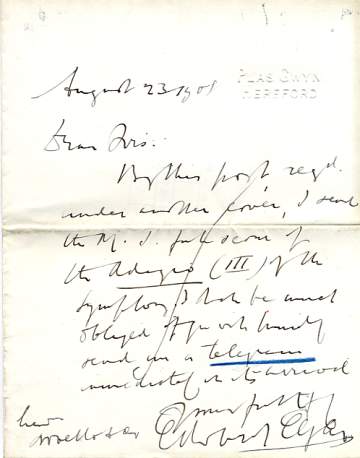 PLAS GWYN
HEREFORD
August 23 1908
Dear Sirs:
By this post regd.
under another cover, I send
the M.S. full score of
the Adagio (III) of the
Symphony I shall be much
obliged if you will kindly
send me a telegram
immediately on its arrival
Yours faithfully
Edward Elgar
Novello & Co